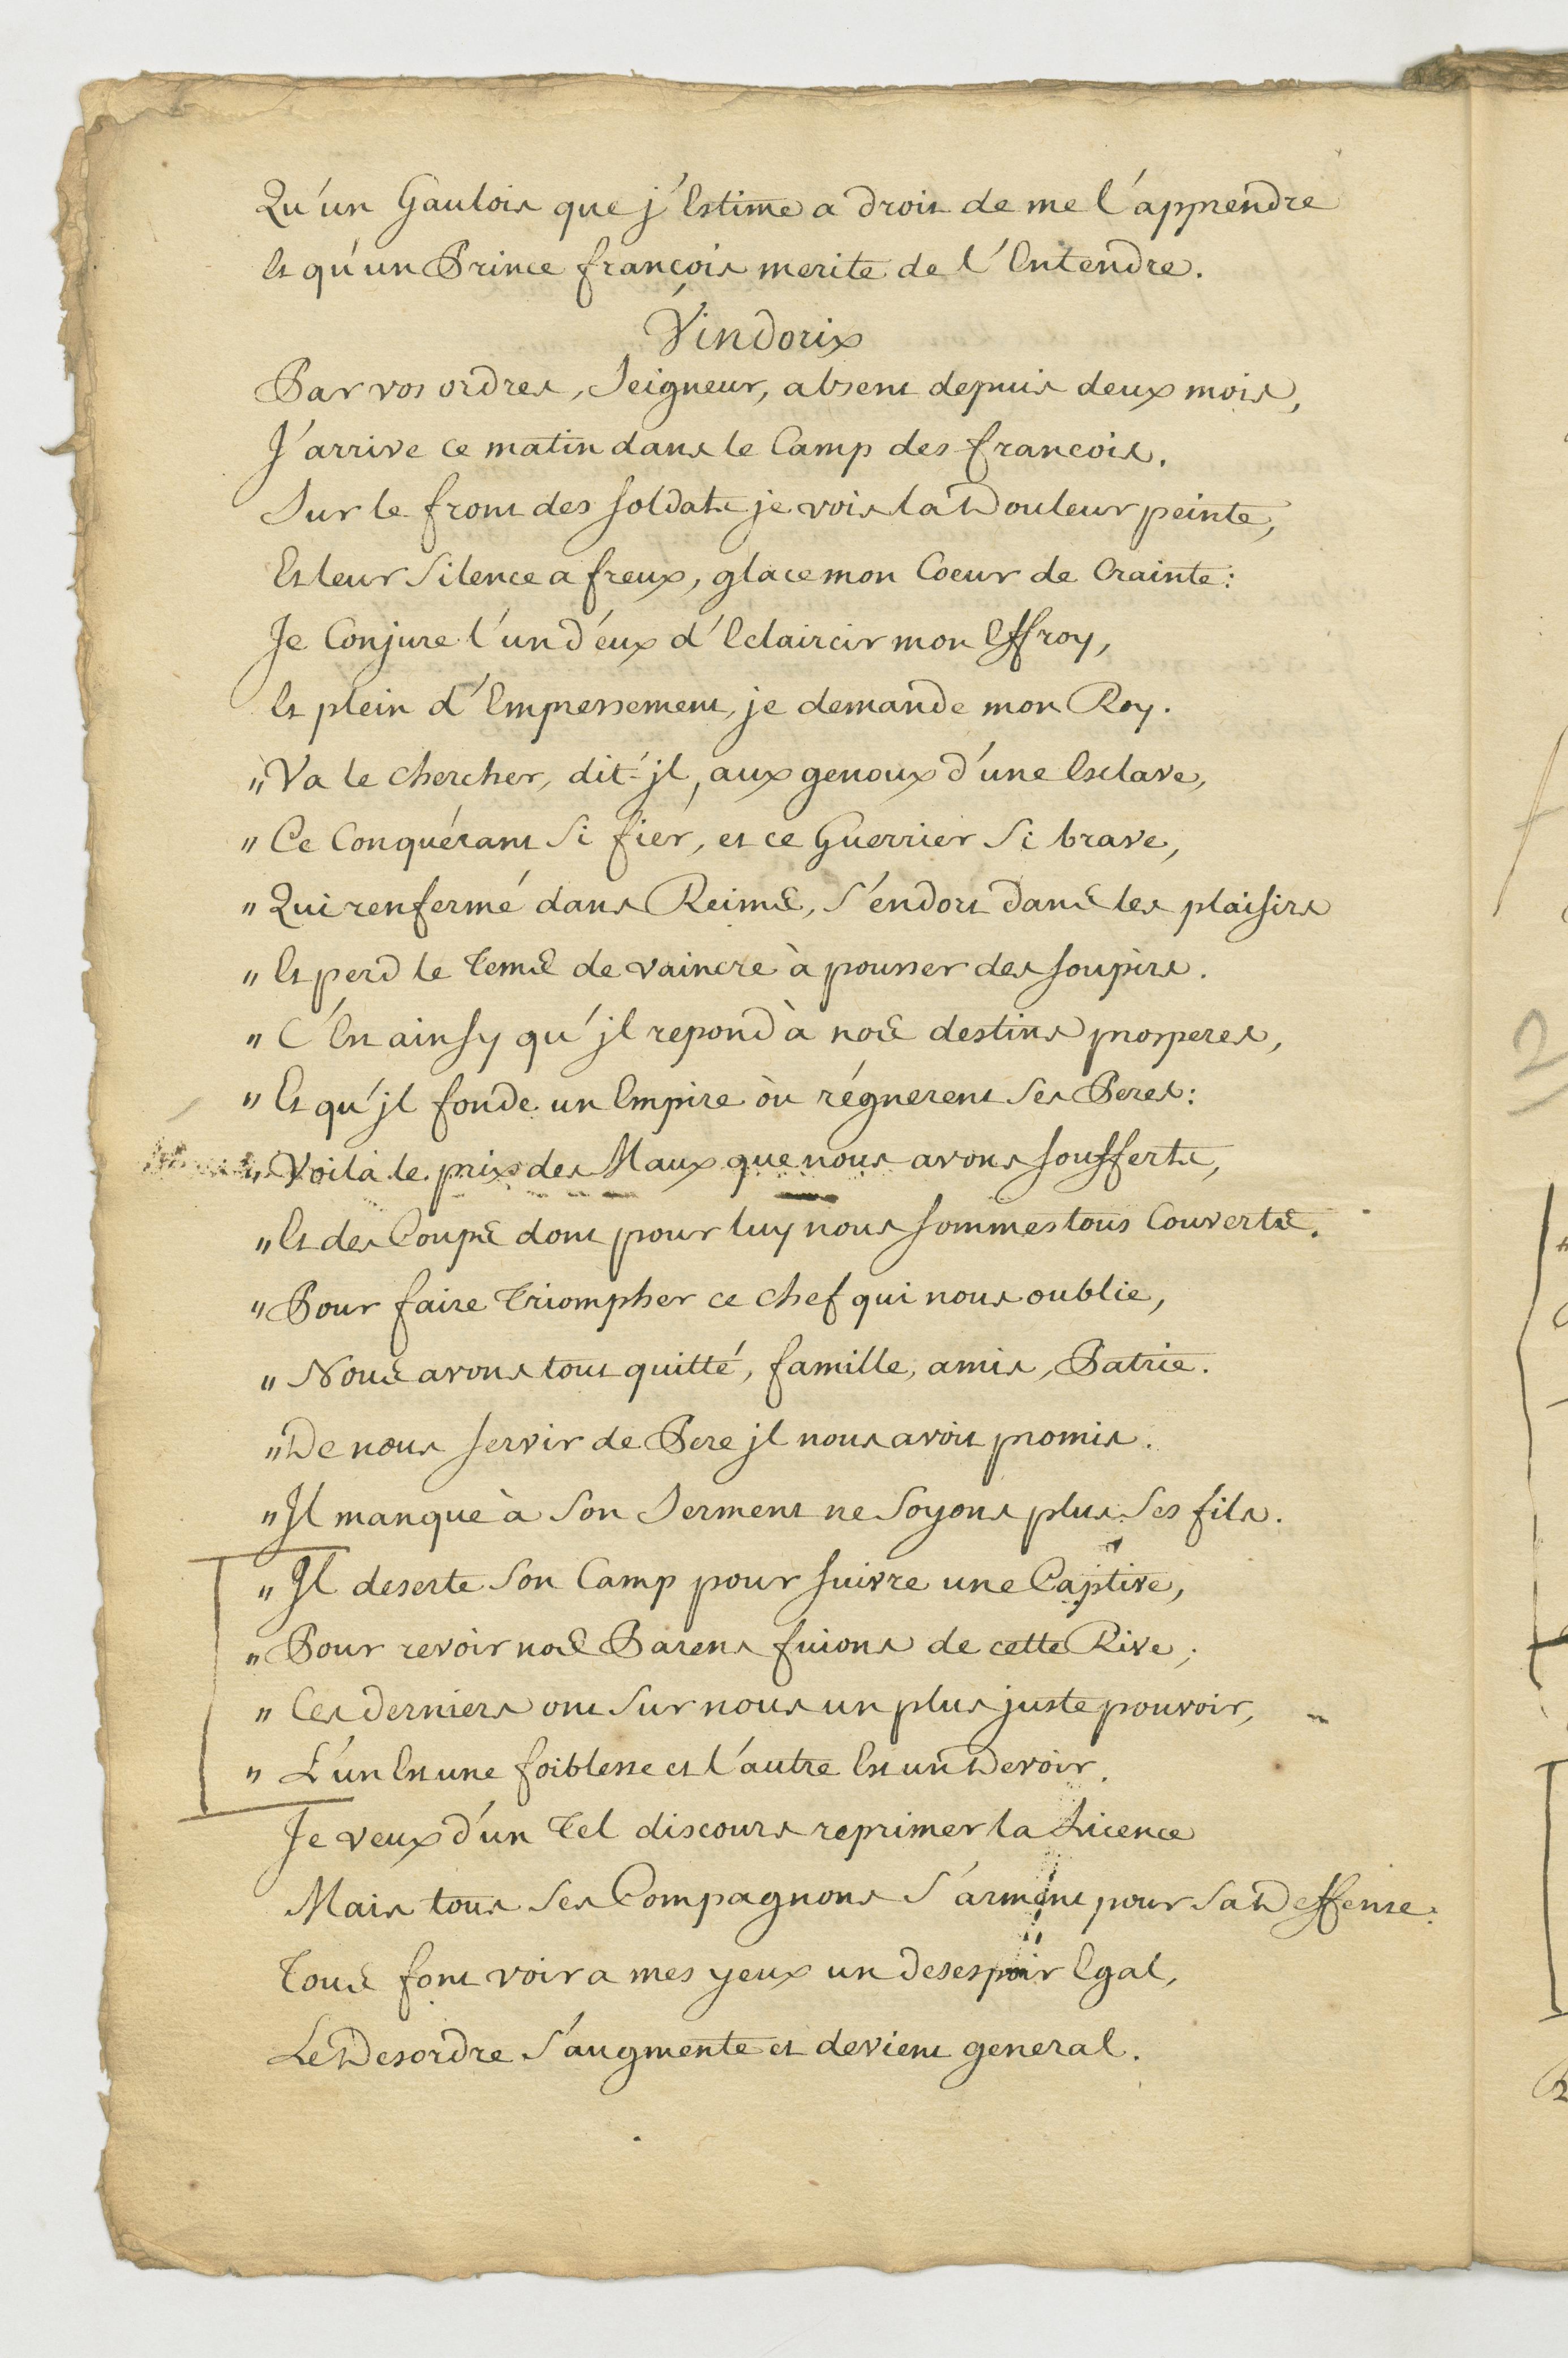 Qu'un Gaulois que j'Estime a droit de me l'apprendre
Et qu'un Prince françois merite de l'Entendre.
Vindorix
Par vos ordres, Seigneur, absent depuis deux mois,
J'arrive ce matin dans le Camp des francois.
Sur le front des soldats je vois la Douleur peinte,
Et leur Silence afreux, glace mon Coeur de Crainte:
Je Conjure l'un d'eux d'Eclaircir mon Effroy,
Et plein d'Empressement, je demande mon Roy.
" Va le chercher, dit-jl, aux genoux d'une Esclave,
" Ce Conquérant Si fier, et ce Guerrier Si brave,
" Qui renfermé dans Reims, s'endort dans les plaisirs
" Et perd le Tems de vaincre à pousser des soupirs.
" C'Est ainsy qu'jl repond à nos destins prosperes,
" Et qu'jl fonde un Empire où régnerent Ses Peres:
" Voilà le prix des Maux que nous avons soufferts,
" Et des Coups dont pour luy nous sommes tous Couverts.
" Pour faire Triompher ce chef qui nous oublie,
" Nous avons tout quitté, famille, amis, Patrie.
" De nous servir de Pere jl nous avoit promis.
" Jl manque à Son Serment ne Soyons plus Ses fils.
" Jl deserte Son Camp pour suivre une Captive,
" Pour revoir nos Parens fuions de cette Rive;
" Ces derniers ont Sur nous un plus juste pouvoir,
" L'un Est une foiblesse et l'autre Est un Devoir.
Je veux d'un Tel discours reprimer la Licence
Mais tous Ses Compagnons S'arment pour Sa Deffense:
Tous font voir a mes yeux un desespoir Egal,
Le Desordre S'augmente et devient general.